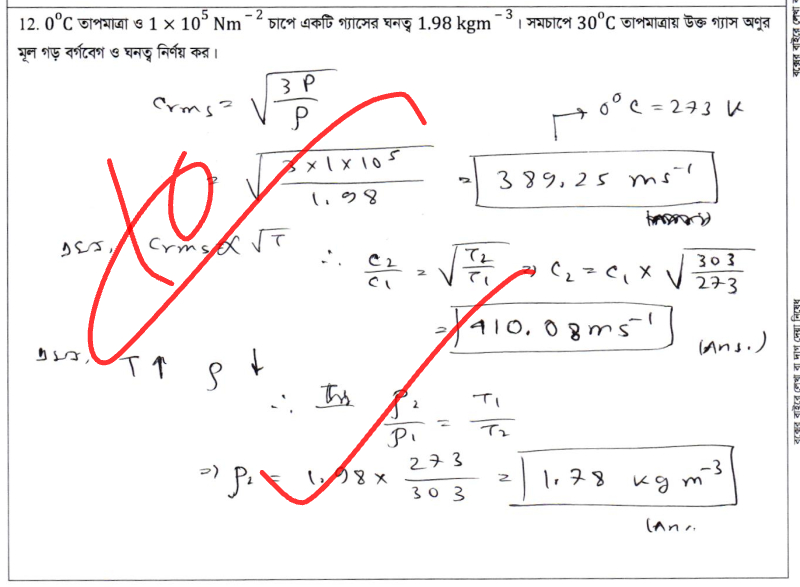 12. 0°C তাপমাত্রা ও 1 × 10⁵ Nm⁻² চাপে একটি গ্যাসের ঘনত্ব 1.98 kgm⁻³। সমচাপে 30°C তাপমাত্রায় উক্ত গ্যাস অণুর
মূল গড় বর্গবেগ ও ঘনত্ব নির্ণয় কর।
Crms = √(3P/ρ)
→ 0°C = 273 K
= √(3 × 1 × 10⁵/1.98) = 389.25 ms⁻¹
10
Crms ∝ √T ∴ C₂/C₁ = √(T₂/T₁) ⇒ C₂ = C₁ × √(303/273)
= 410.08 ms⁻¹ (Ans.)
T↑ ρ↓
∴ ρ₂/ρ₁ = T₁/T₂
⇒ ρ₂ = 1.98 × 273/303 = 1.78 kg m⁻³
(Ans.